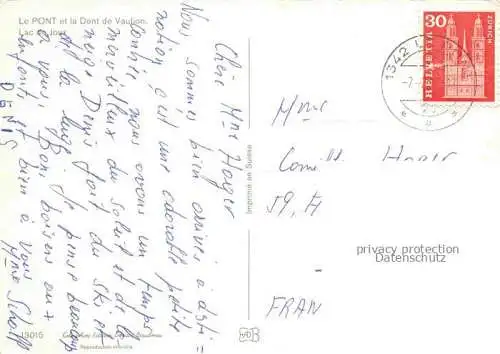 Le PONT et la Dent de Vaulion.
Lac de Joux
Chère Mme Hoger
Nous sommes bien arrivés à desti-
nation, c'est une adorable petite
Connée nous avons un temps
merveilleux du soleil et de la
neige Denis fait du ski et
de la luge. Je pense beaucoup
à vous, Bons baisers aux
enfants et bien à vous
Mme Scholl
DENIS
13015
Reproduction interdite
Imprimé en Suisse
1342
HELVETIA
30
ZÜRICH
Mme
59,
FRAN
privacy protection
Datenschutz